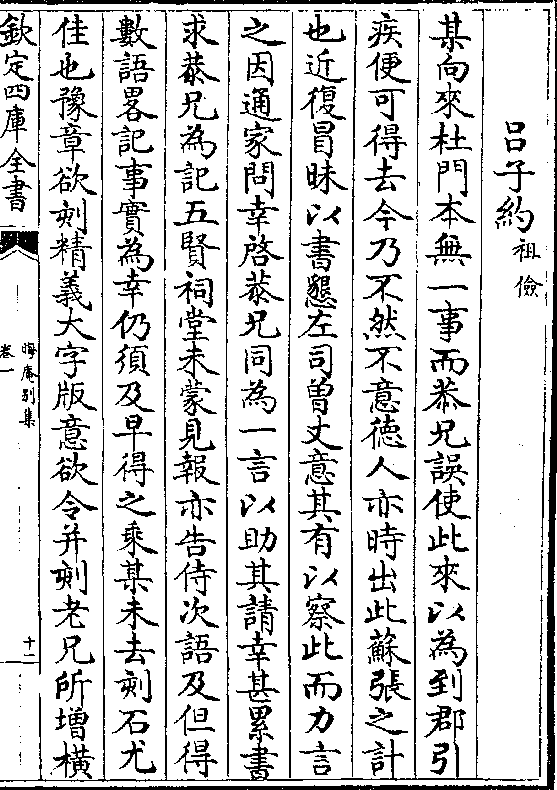 吕子約祖儉
某向來杜門本無一事而恭兄誤使此來以為到郡引
疾便可得去今乃不然不意德人亦時出此蘇張之計
也近復冒昧以書懇左司曽丈意其有以察此而力言
之因通家問幸啓恭兄同為一言以助其請幸甚累書
求恭兄為記五賢祠堂未蒙見報亦告侍次語及但得
數語畧記事實為幸仍須及早得之乘某未去刻石尤
佳也豫章欲刻精義大字版意欲令并刻老兄所增横
欽定四庫全書
晦庵别集
卷一
十二